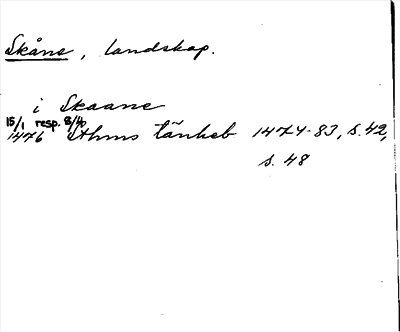 Skåne, landskap.
i Skaane
15/1 resp. 8/10
1476 Sthms tänkeb 1474-83, s. 42,
s. 48